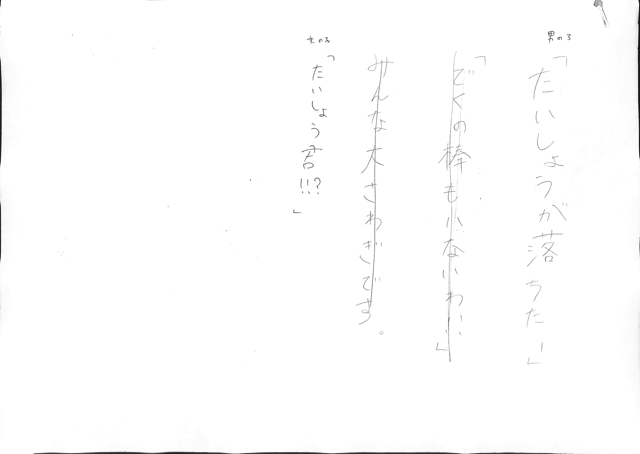 男の子
「たいしょうが落ちた!」
「どくの棒も小ないわ…」
みんな大さわぎです。
女の子
「たいしょう君!!?」